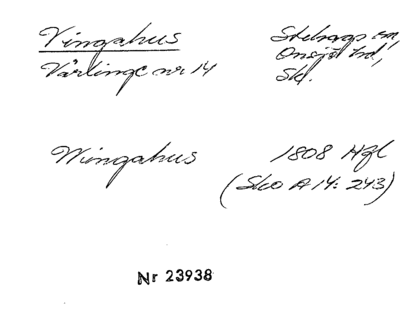 Vingahus
Värlinge nr 14
Stehags sn,
Onsjö hd,
Sk.
Wingahus
1808 Hfl
(Sko A 14: 243)
Nr 23938